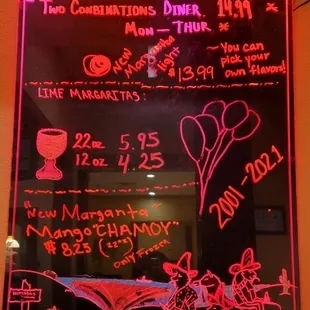 Two Combinations Diner 14.99
Mon - Thur
New Margarita light
$13.99
~ You can pick your own flavors!
Lime Margaritas:
22oz 5.95
12oz 4.25
2001-2021
"New Marganta
Mango "CHAMOY"
$8.25 (22oz)
Only Frozen